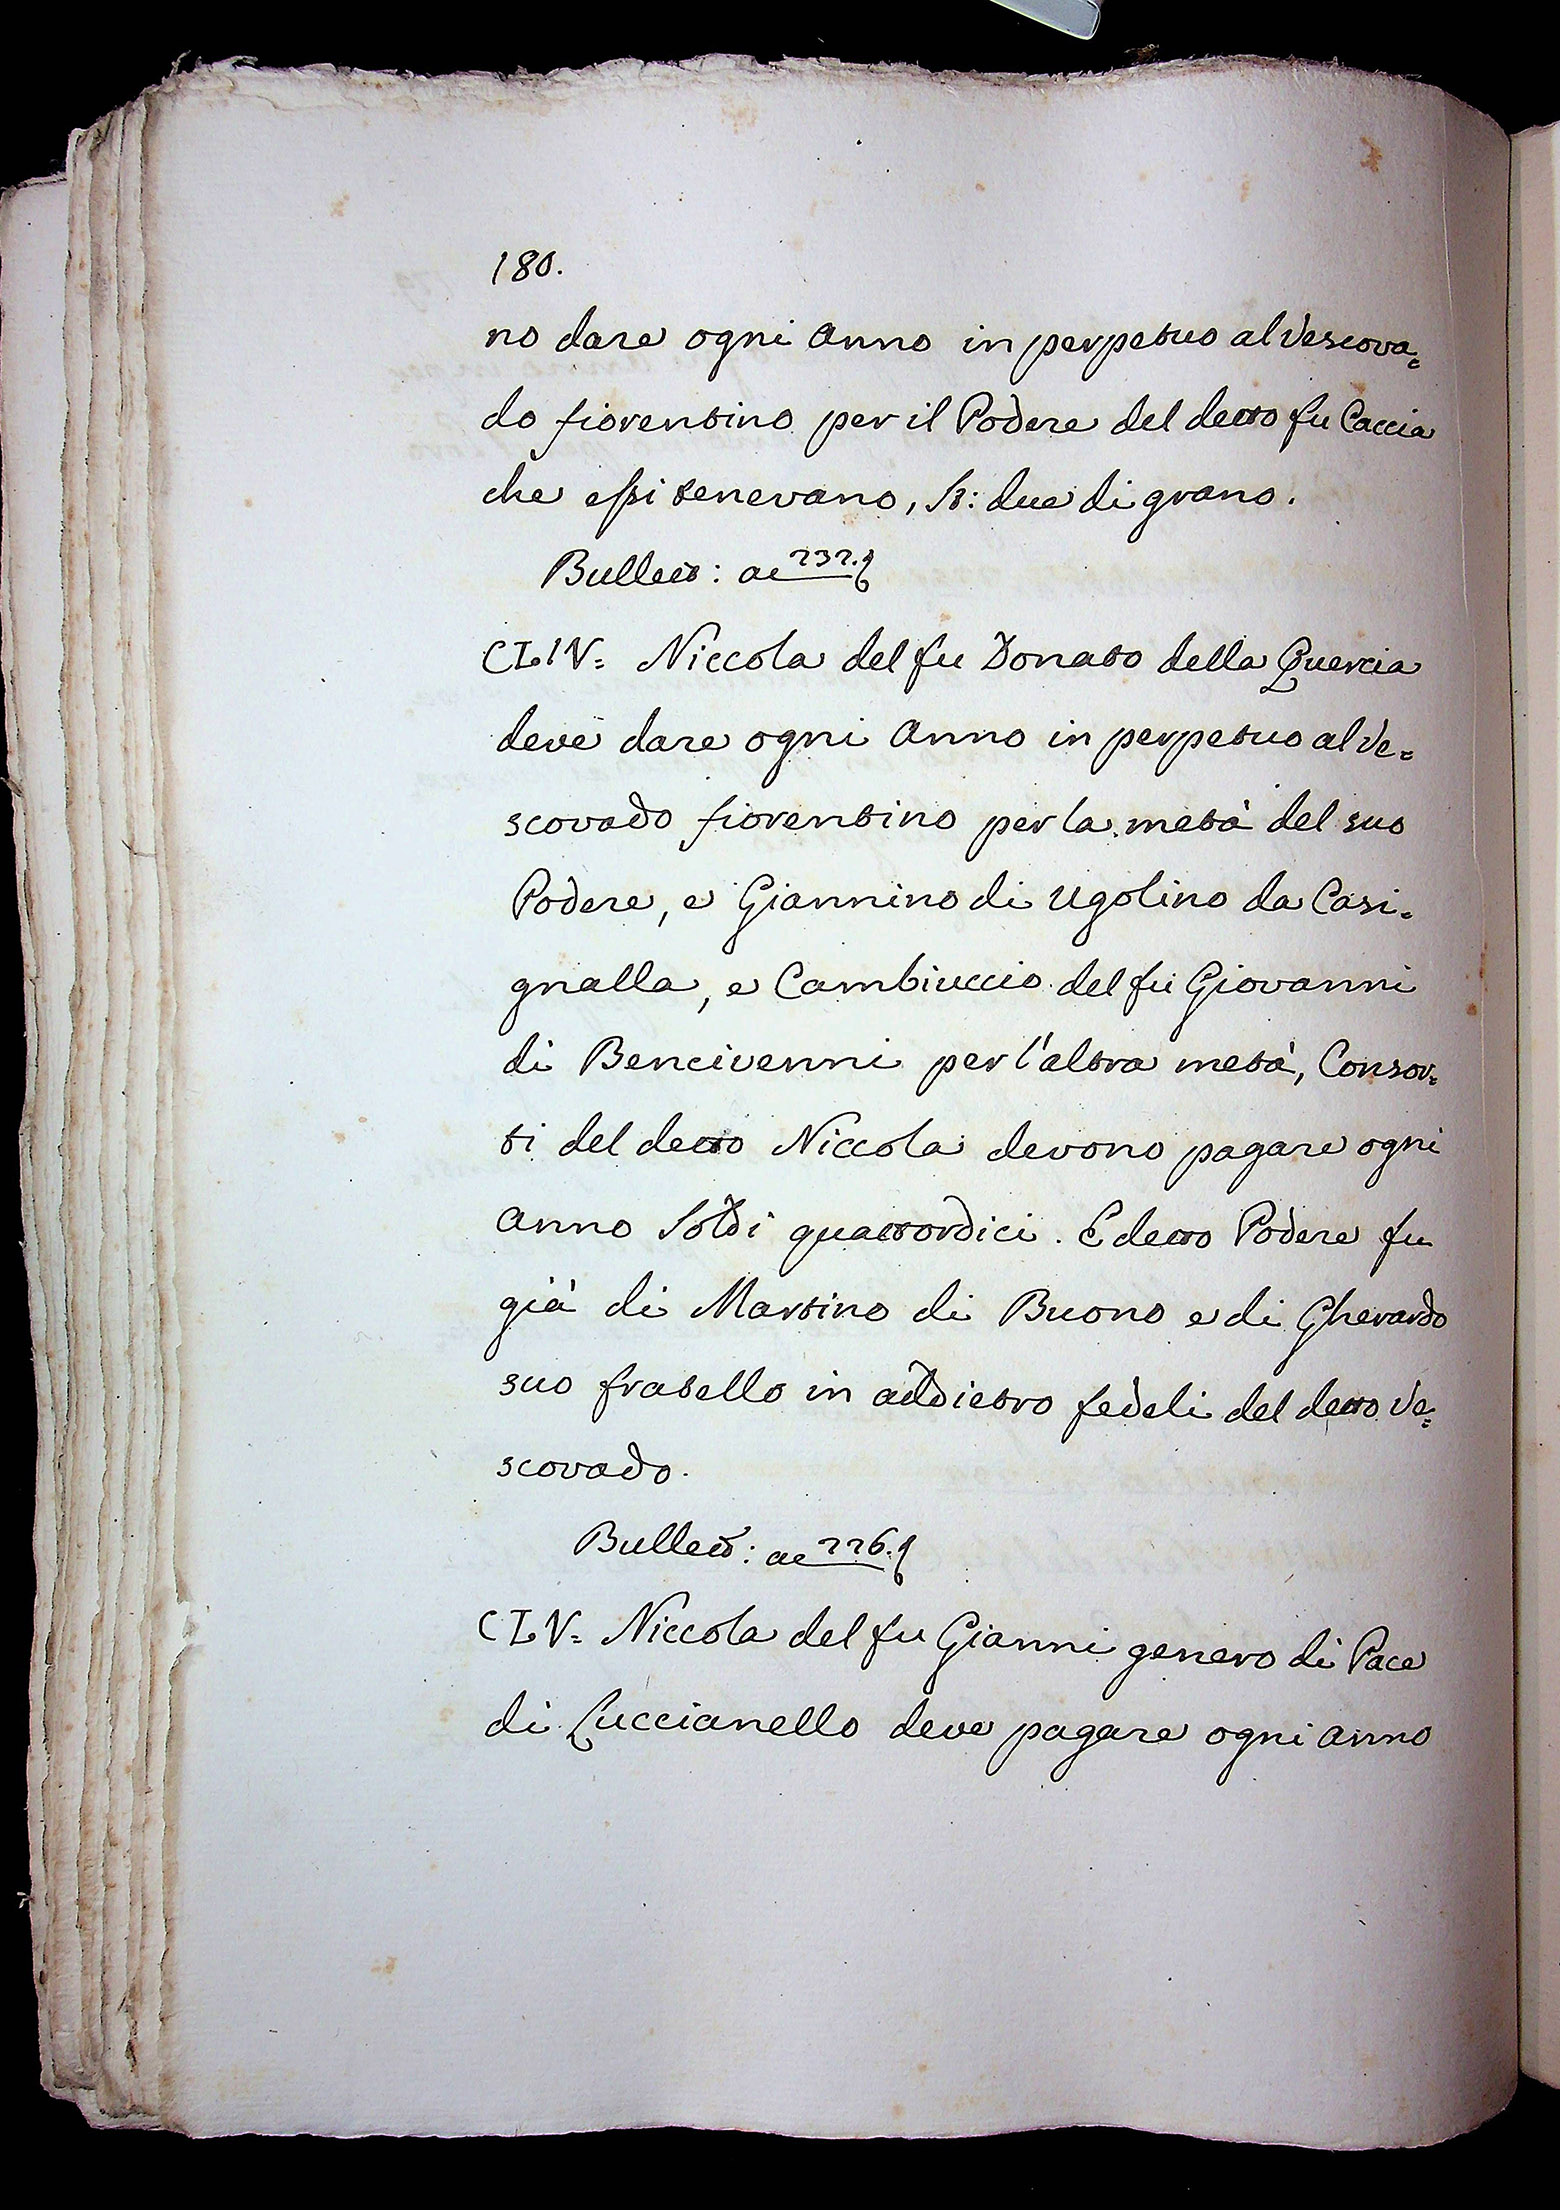 180.
no dare ogni Anno in perpetuo al Vescova=
do fiorentino per il Podere del detto fu Caccia
che essi tenevano, St: due di grano.
Bullett: ac 232.
CLIV= Niccola del fu Donato della Quercia
deve dare ogni Anno in perpetuo al Ve=
scovado fiorentino per la metà del suo
Podere, e Giannino di Ugolino da Casi=
gnalla, e Cambiuccio del fu Giovanni
di Bencivenni per l'altra metà, Consor=
ti del detto Niccola devono pagare ogni
Anno Soldi quattordici. E detto Podere fu
già di Martino di Buono e di Gherardo
suo fratello in addietro fedeli del detto Ve=
scovado.
Bullett: ac 226.
CLV= Niccola del fu Gianni genero di Pace
di Luccianello deve pagare ogni Anno